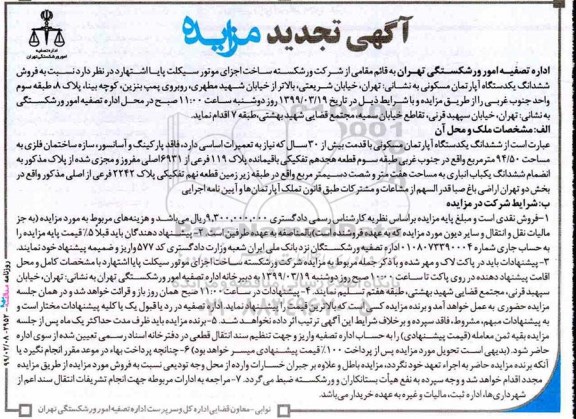 آگهی تجدید مزایده
اداره تصفیه
امور ورشکستگی تهران
اداره تصفیه امور ورشکستگی تهران به قائم مقامی از شرکت ورشکسته ساخت اجزای موتور سیکلت پایا اشتهارد در نظر دارد نسبت به فروش
ششدانگ یکدستگاه آپارتمان مسکونی به نشانی: تهران، خیابان شریعتی، بالاتر از خیابان شهید مطهری، روبروی پمپ بنزین، کوچه بینا، پلاک ۸ طبقه سوم
واحد جنوب غربی را از طریق مزایده و با شرایط ذیل در تاریخ ۱۳۹۹/۰۳/۱۹ روز دوشنبه ساعت ۱۱:۰۰ صبح در محل اداره تصفیه امور ورشکستگی
به نشانی: تهران، خیابان سپهبد قرنی، تقاطع خیابان سمیه، مجتمع قضایی شهید بهشتی، طبقه ۷ اقدام نماید.
الف: مشخصات ملک و محل آن
عبارت است از ششدانگ یکدستگاه آپارتمان مسکونی با قدمت بیش از ۳۰ سال که نیاز به تعمیرات اساسی دارد، فاقد پارکینگ و آسانسور، سازه ساختمان فلزی به
مساحت ۹۴/۵۰ مترمربع واقع در جنوب غربی طبقه سوم قطعه هجدهم تفکیکی باقیمانده پلاک ۱۱۹ فرعی از ۶۹۳۱ اصلی مفروز و مجزی شده از پلاک مذکور به
انضمام ششدانگ یکباب انباری به مساحت هفت متر و شصت دسیمتر مربع واقع در طبقه زیر زمین قطعه نهم تفکیکی پلاک ۲۲۴۲ فرعی از اصلی مذکور واقع در
بخش دو تهران اراضی باغ صبا قدر السهم از مشاعات و مشترکات طبق قانون تملک آپارتمان‌ها و آیین نامه اجرایی
ب: شرایط شرکت در مزایده
۱- فروش نقدی است و مبلغ پایه مزایده براساس نظریه کارشناس رسمی دادگستری ۹,۳۰۰,۰۰۰,۰۰۰ ریال می‌باشد و هزینه‌های مربوط به مورد مزایده (به جز
مالیات نقل و انتقال و سایر دیون مورد مزایده که به عهده فروشنده است) بالمناصفه به عهده طرفین است ۲- پیشنهاد دهندگان باید قبلا ۵٪ قیمت پایه مزایده را
به حساب جاری شماره ۰۱۰۸۰۷۳۳۹۰۰۰۴ اداره تصفیه ورشکستگان نزد بانک ملی ایران شعبه وزارت دادگستری کد ۵۷۷ واریز و ضمیمه پیشنهاد خود نمایند.
۳- پیشنهادات باید در پاکت لاک و مهر شده و با ذکر جمله مربوط به مزایده شرکت ورشکسته ساخت اجزای موتور سیکلت پایا اشتهارد با مشخصات کامل و محل
اقامت پیشنهاد دهنده در روی پاکت تا ساعت ۱۰:۰۰ صبح روز دوشنبه ۱۳۹۹/۰۳/۱۹ به دبیرخانه اداره تصفیه امور ورشکستگی تهران به نشانی: تهران، خیابان
سپهبد قرنی، مجتمع قضایی شهید بهشتی، طبقه هفتم تسلیم نمایند. ۴- پیشنهادات در ساعت ۱۱:۰۰ صبح همان روز باز و قرائت خواهد شد و در همان جلسه
مزایده حضوری به عمل خواهد آمد و برنده مزایده کسی است که بالاترین قیمت را پیشنهاد نماید. اداره تصفیه در رد یا قبول یک یا کلیه پیشنهادات مختار است و
به پیشنهادات مبهم، مشروط، فاقد سپرده و برخلاف شرایط این آگهی ترتیب اثر داده نخواهد شد. ۵- برنده مزایده باید ظرف مدت حداکثر یک ماه پس از جلسه
مزایده بقیه ثمن معامله (قیمت پیشنهادی) را به حساب اداره تصفیه واریز و جهت تنظیم سند انتقال قطعی در دفترخانه اسناد رسمی تعیین شده از سوی اداره
حاضر شود. (بدیهی است تحویل مورد مزایده پس از پرداخت ۱۰۰٪ قیمت پیشنهادی میسر خواهد بود) ۶- چنانچه پرداخت بهاء در موعد مقرر انجام نگیرد یا
آنکه برنده مزایده حاضر به اجراء تعهد خود نگردد، مزایده باطل و علاوه بر جبران خسارات وارده از محل وجه تودیعی نسبت به فروش مورد مزایده از طریق مزایده
مجدد اقدام خواهد شد و وجه سپرده به نفع هیأت بستانکاران و ورشکسته ضبط می‌گردد. ۷- مراجعه به ادارات مربوطه جهت انجام تشریفات انتقال سند اعم از
شهرداری‌ها، اداره ثبت، مالیات و غیره به عهده خریدار می‌باشد.
نوابی - معاون قضایی اداره کل و سرپرست اداره تصفیه امور ورشکستگی تهران